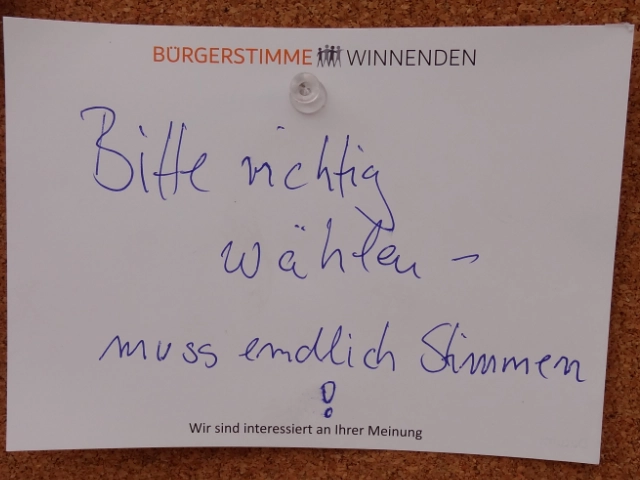 BÜRGERSTIMME WINNENDEN
Bitte richtig
wählen -
muss endlich Stimmen
!
Wir sind interessiert an Ihrer Meinung